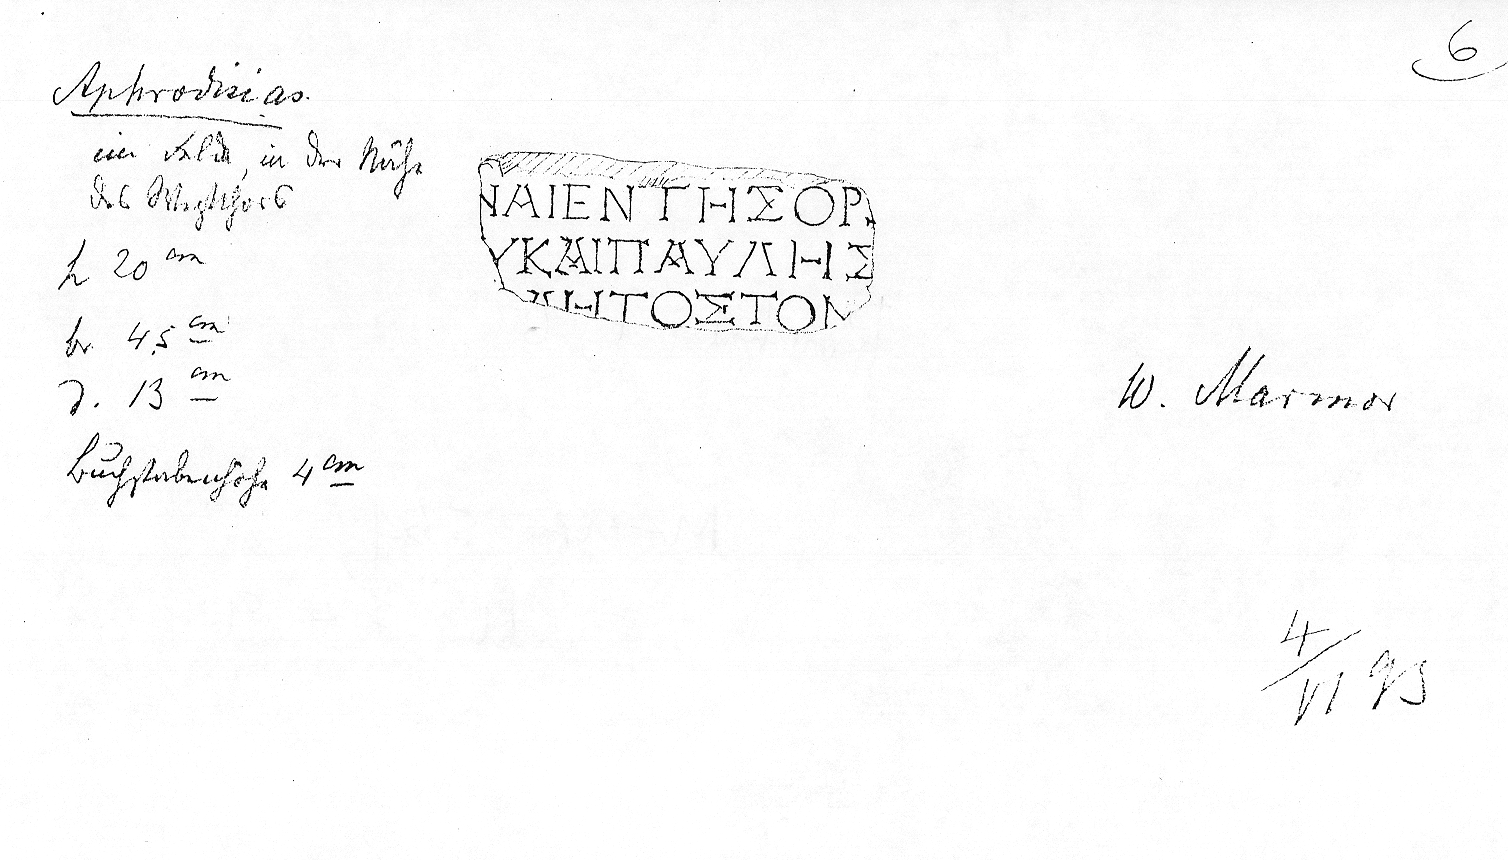 6
Aphrodisias.
im Felde, in der Nähe
des Westthors
h 20 cm
br. 45 cm
d. 13 cm
Buchstabenhöhe 4 cm
ΝΑΙΕΝΤΗΣΟΡ
ΥΚΑΙΠΑΥΛΗΣ
ΗΤΟΣΤΟΝ
W. Marmor
4/VI 93